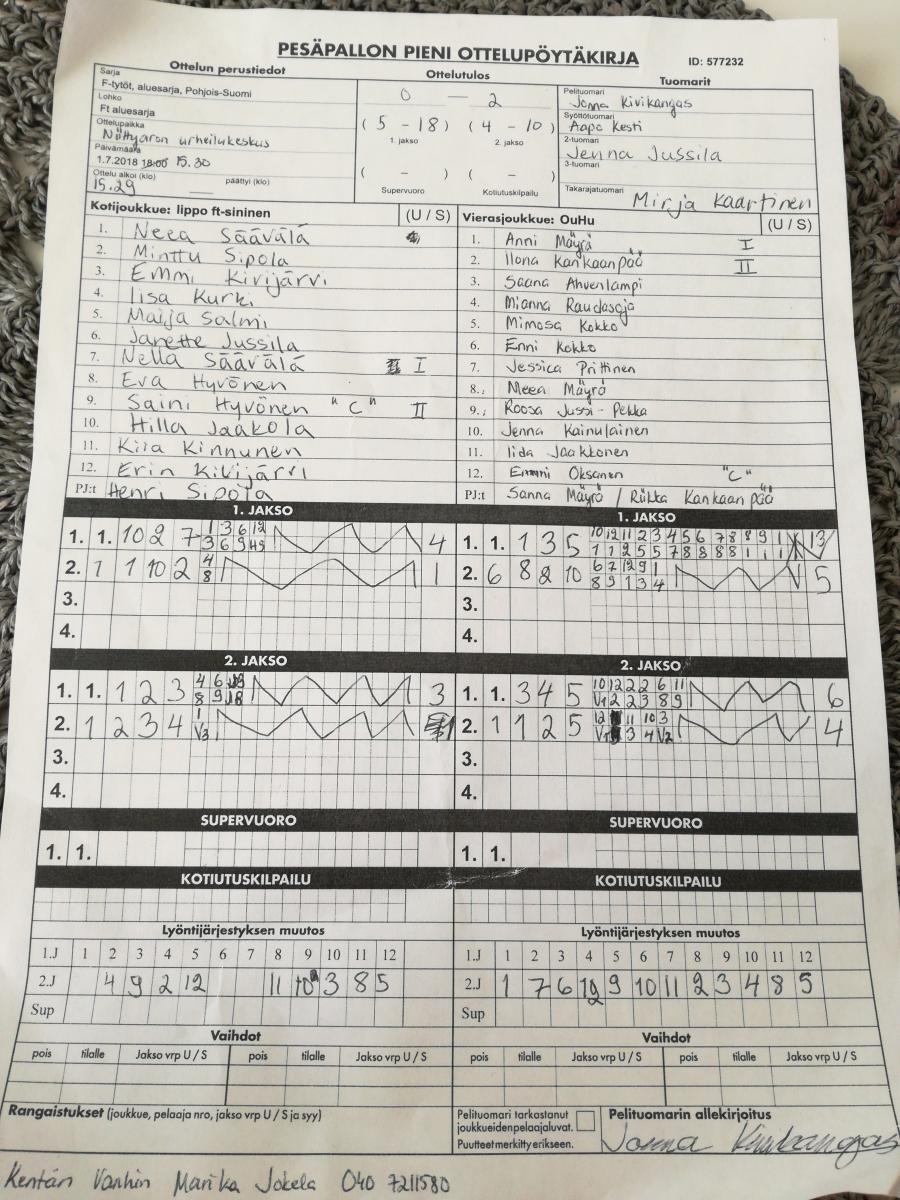 PESÄPALLON PIENI OTTELUPÖYTÄKIRJA
ID: 577232
Ottelun perustiedot
Sarja
F-tytöt, aluesarja, Pohjois-Suomi
Lohko
Ft aluesarja
Ottelupaikka
Niittyaron urheilukeskus
Päivämäärä
1.7.2018 18:00 15.30
Ottelu alkoi (klo) päättyi (klo)
15.29
Ottelutulos
0 — 2
(5 - 18) (4 - 10)
1. jakso 2. jakso
( - ) ( - )
Supervuoro Kotiutuskilpailu
Tuomarit
Pelituomari
Jonna Kivikangas
Syöttötuomari
Aapo Kesti
2-tuomari
Jenna Jussila
3-tuomari
Takarajatuomari
Mirja Kaartinen
Kotijoukkue: lippo ft-sininen (U / S)
1. Neea Säävälä
2. Minttu Sipola
3. Emmi Kivijärvi
4. Iisa Kurki
5. Maija Salmi
6. Janette Jussila
7. Nella Säävälä I
8. Eva Hyvönen
9. Saini Hyvönen "C" II
10. Hilla Jaakola
11. Kiia Kinnunen
12. Erin Kivijärvi
PJ:t Henri Sipola
Vierasjoukkue: OuHu (U / S)
1. Anni Mäyrä I
2. Ilona Kankaanpää II
3. Saana Ahvenlampi
4. Mianna Raudasoja
5. Mimosa Kokko
6. Enni Kokko
7. Jessica Prittinen
8. Meea Mäyrä
9. Roosa Jussi-Pekka
10. Jenna Kainulainen
11. Iida Jaakkonen
12. Emmi Oksanen "C"
PJ:t Sanna Mäyrä / Riikka Kankaanpää
1. JAKSO
1. 1. 10 2 7 1 3 6 12 4
3 6 9
2. 1 1 10 2 4 1
8
3.
4.
1. JAKSO
1. 1. 1 3 5 10 12 11 2 3 4 5 6 7 8 8 9 1 13
1 1 2 5 5 7 8 8 8 1 1 1
2. 6 8 2 10 6 7 12 9 1 5
8 9 1 3 4
3.
4.
2. JAKSO
1. 1. 1 2 3 4 6 3
8 9
2. 1 2 3 4 1 1
V3
3.
4.
2. JAKSO
1. 1. 3 4 5 10 12 2 2 6 11 6
V1 2 2 3 8 9
2. 1 1 2 5 12 11 10 3 4
V1 3 4 V2
3.
4.
SUPERVUORO
1. 1.
SUPERVUORO
1. 1.
KOTIUTUSKILPAILU
KOTIUTUSKILPAILU
Lyöntijärjestyksen muutos
1.J 1 2 3 4 5 6 7 8 9 10 11 12
2.J 4 9 2 12 11 10 3 8 5
Sup
Lyöntijärjestyksen muutos
1.J 1 2 3 4 5 6 7 8 9 10 11 12
2.J 1 7 6 12 9 10 11 2 3 4 8 5
Sup
Vaihdot
pois tilalle Jakso vrp U / S pois tilalle Jakso vrp U / S
Vaihdot
pois tilalle Jakso vrp U / S pois tilalle Jakso vrp U / S
Rangaistukset (joukkue, pelaaja nro, jakso vrp U / S ja syy)
Pelituomari tarkastanut
joukkueidenpelaajaluvat.
Puutteet merkitty erikseen.
Pelituomarin allekirjoitus
Jonna Kivikangas
Kentän Vanhin Marika Jokela 040 7211580